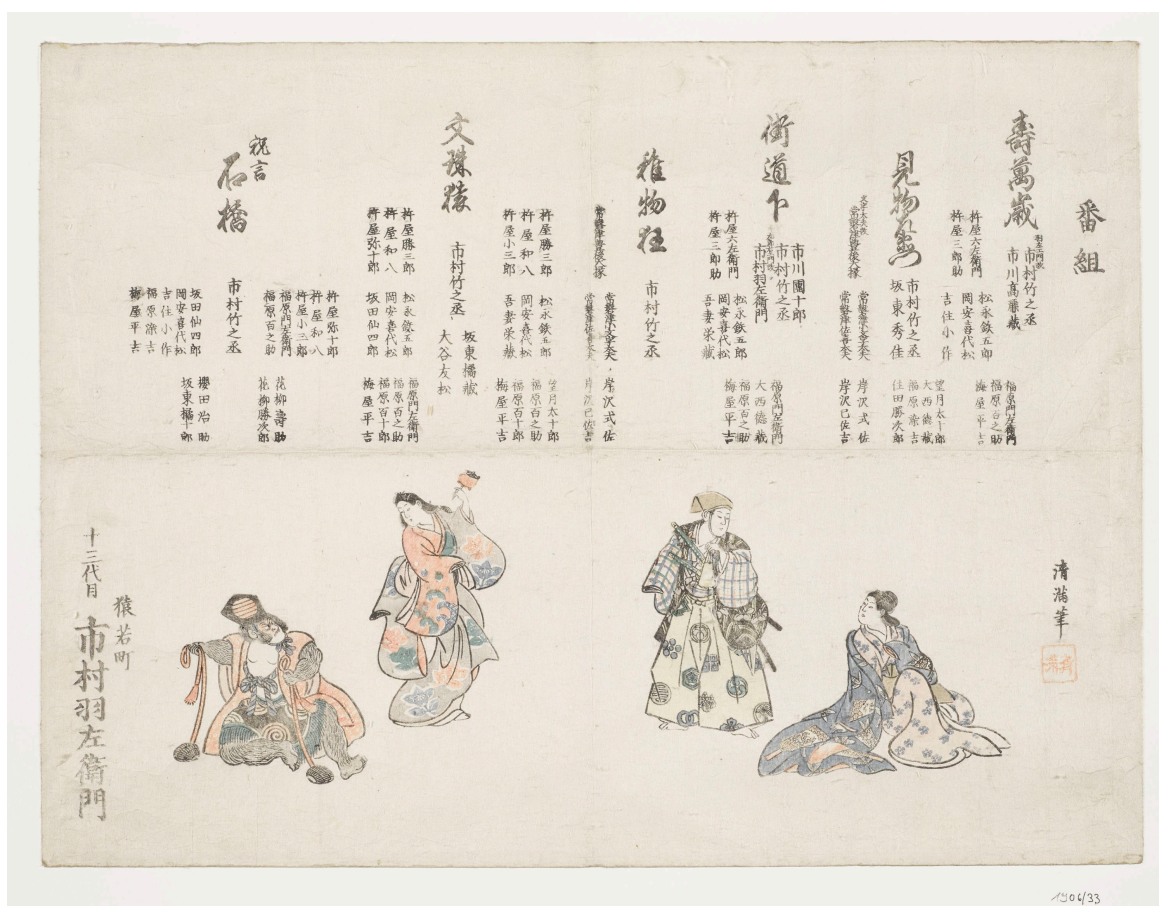 番組
壽萬歳
羽左エ門改
市村竹之丞
市川高麗藏
杵屋六左衛門
杵屋三郎助
松永鉄五郎
岡安喜代松
吉住小作
福原門左衛門
福原百之助
梅屋平吉
見物左衛門
市村竹之丞
坂東秀佳
望月太十郎
大西徳藏
福原濱吉
住田勝次郎
文字太夫改
常磐津豊後大掾
常磐津小文字太夫
常磐津佐喜太夫
岸沢式佐
岸沢巳佐吉
街道下
市川團十郎
市村竹之丞
市村羽左衛門
杵屋六左衛門
杵屋三郎助
松永鉄五郎
岡安喜代松
吾妻栄藏
福原門左衛門
大西徳藏
福原百之助
梅屋平吉
種物狂
市村竹之丞
常磐津豊後大掾
常磐津小文字太夫
常磐津佐喜太夫
岸沢式佐
岸沢巳佐吉
杵屋勝三郎
杵屋和八
杵屋小三郎
松永鉄五郎
岡安喜代松
吾妻栄藏
望月太十郎
福原百之助
福原百十郎
梅屋平吉
文珠猿
市村竹之丞
坂東橘藏
大谷友松
杵屋勝三郎
杵屋和八
杵屋弥十郎
松永鉄五郎
岡安喜代松
坂田仙四郎
福原門左衛門
福原百之助
福原百十郎
梅屋平吉
祝言
石橋
市村竹之丞
杵屋弥十郎
杵屋和八
杵屋小三郎
福原門左衛門
福原百之助
花柳壽助
花柳勝次郎
坂田仙四郎
岡安喜代松
吉住小作
福原濱吉
梅屋平吉
櫻田治助
坂東橘十郎
清満筆
猿若町
十三代目
市村羽左衛門
1906/33